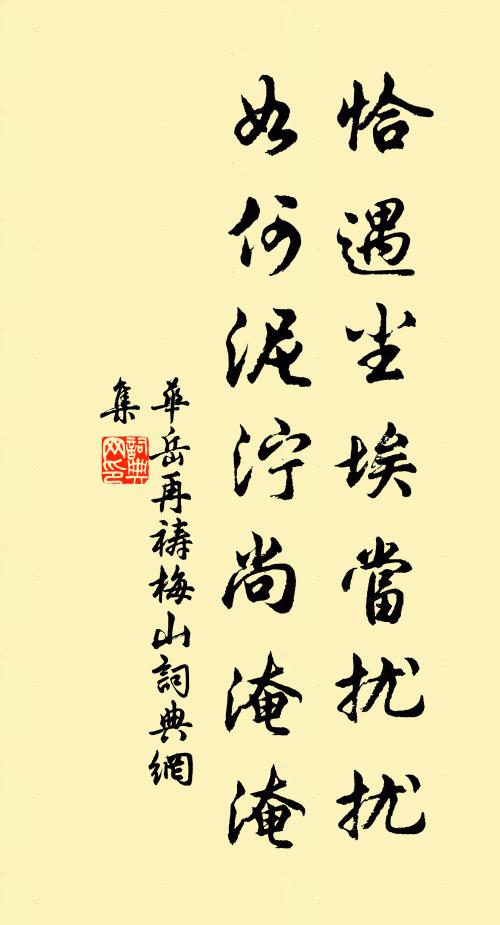 恰遇尘埃當扰扰
如何泥泞尚淹淹
華岳再祷梅山詞典網
集
詞典
网印